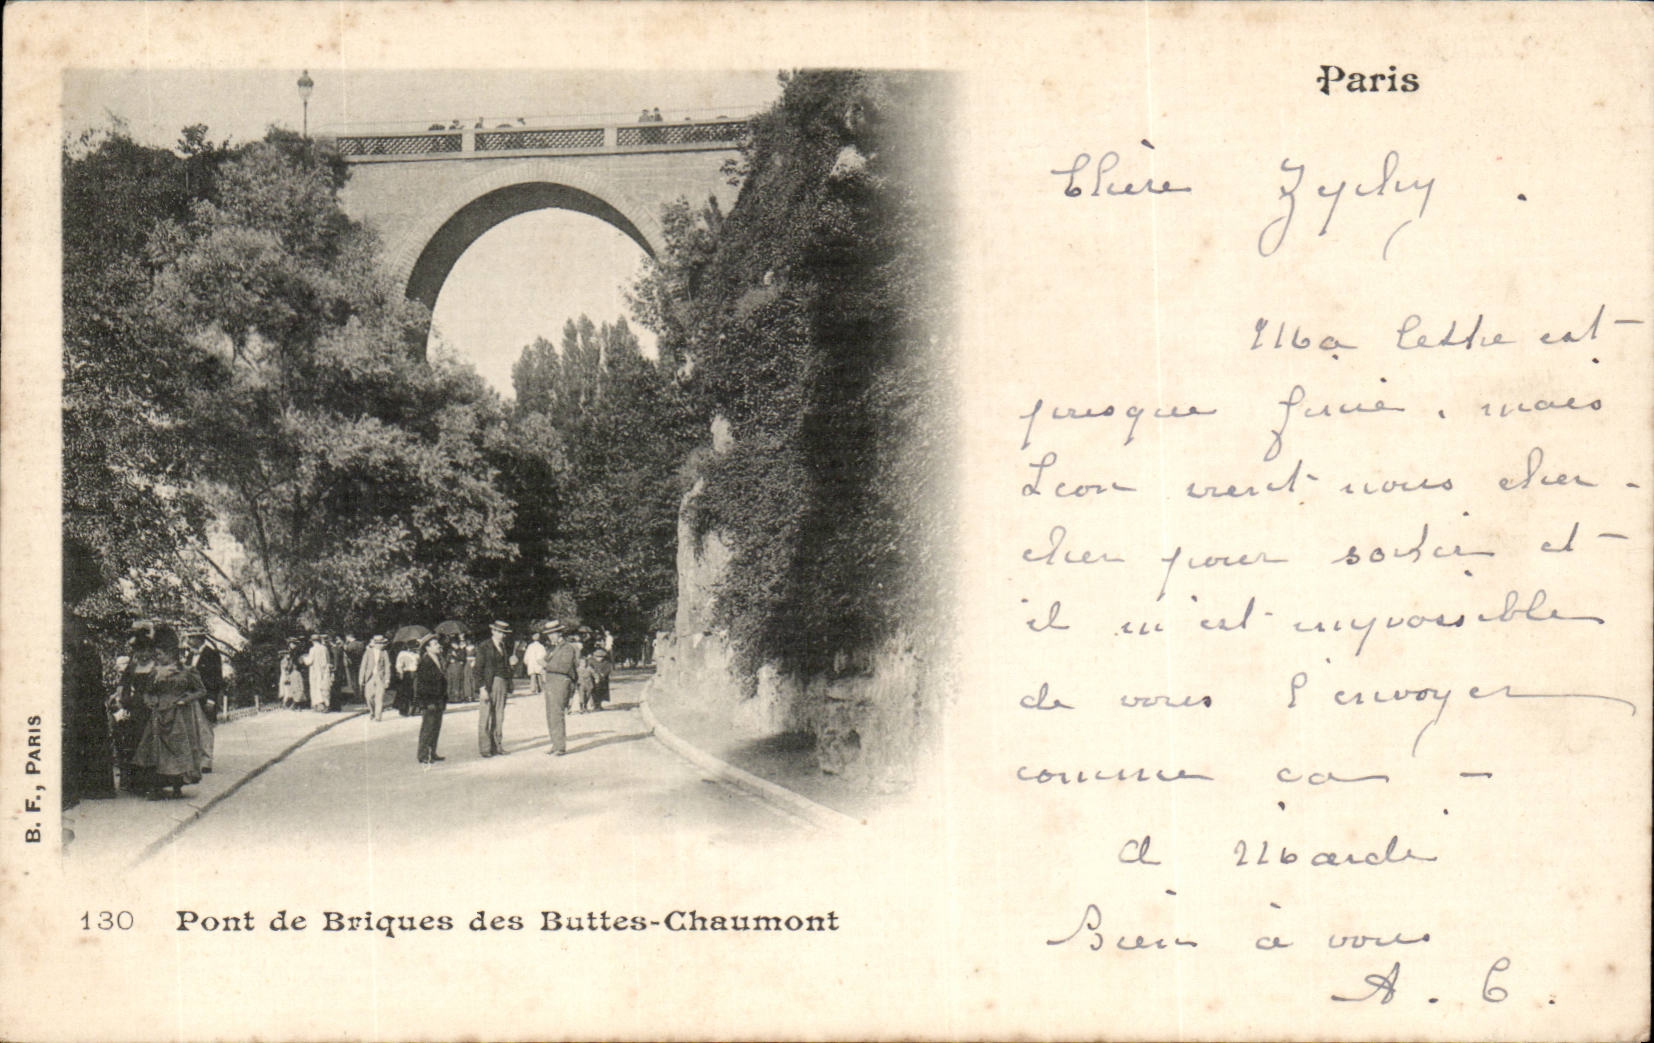 Paris
Chère Zychy.
Ma lettre est
presque finie, mais
Leon vient nous cher-
cher pour sortir et
il m'est impossible
de vous l'envoyer
comme ça -
à Mardi
Bien à vous
A. C.
B. F., PARIS
130 Pont de Briques des Buttes-Chaumont